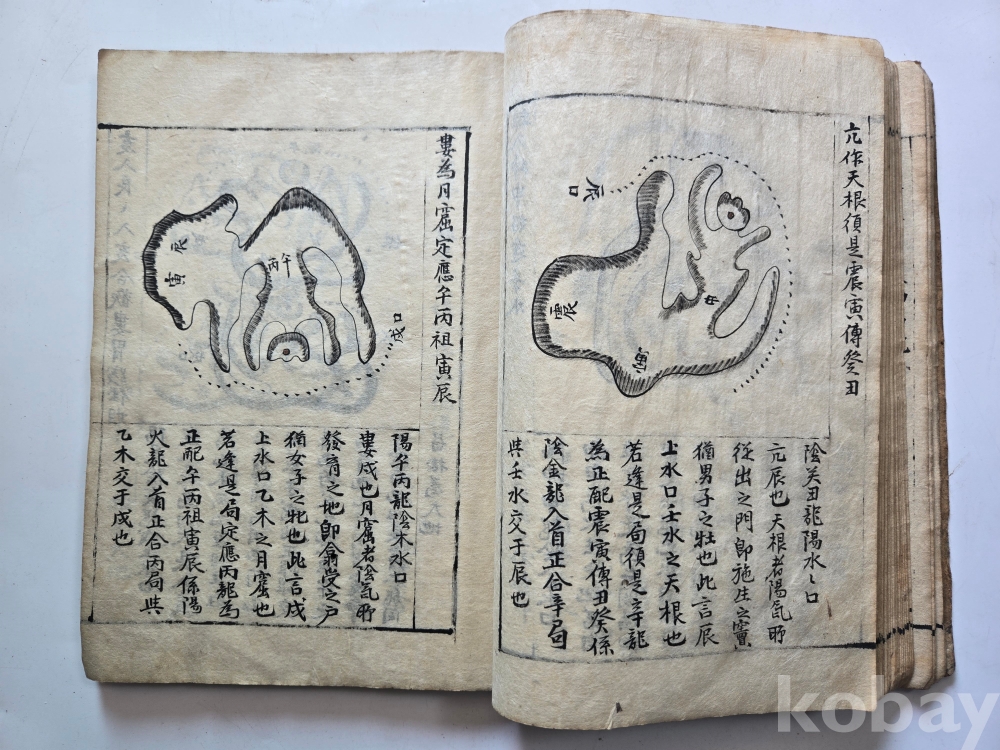 亢作天根須是震寅傳癸丑
辰口
震
寅
陰癸丑龍陽水〻口
亢辰也天根者陽氣所
從出之門卽施生之竇
猶男子之牡也此言辰
上水口壬水之天根也
若逢是局須是辛龍
為正配震寅傳丑癸係
陰金龍入首正合辛局
與壬水交于辰也
婁為月窟定應午丙祖寅辰
辰
寅
午
丙
戌口
陽午丙龍陰木水口
婁戌也月窟者陰氣所
發育之地卽翕受之戶
猶女子之牝也此言戌
上水口乙木之月窟也
若逢是局定應丙龍為
正配午丙祖寅辰係陽
火龍入首正合丙局與
乙木交于戌也
kobay